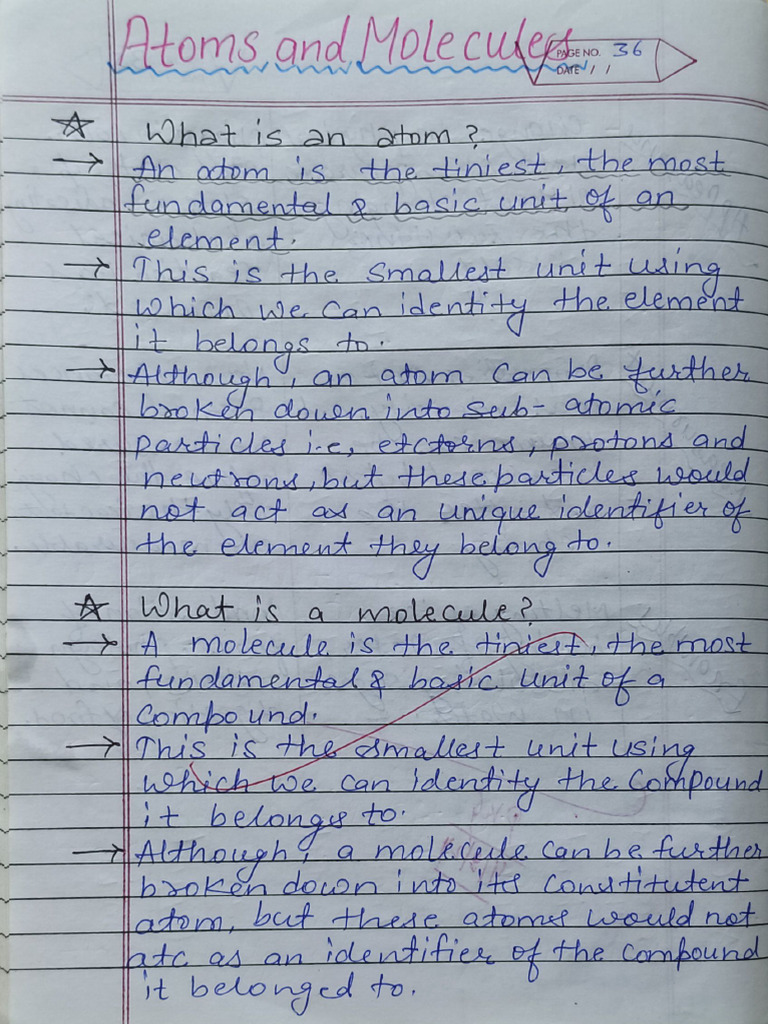 Atoms and Molecules
PAGE NO. 36
DATE / /
☆ What is an atom?
→ An atom is the tiniest, the most
fundamental & basic unit of an
element.
→ This is the smallest unit using
which we can identity the element
it belongs to.
→ Although, an atom can be further
broken down into sub-atomic
particles i.e, etctorns, protons and
neutrons, but these particles would
not act as an unique identifier of
the element they belong to.
☆ What is a molecule?
→ A molecule is the tiniest, the most
fundamental & basic unit of a
compound.
→ This is the smallest unit using
which we can identity the compound
it belongs to.
→ Although, a molecule can be further
broken down into its constitutent
atom, but these atoms would not
atc as an identifier of the compound
it belonged to.